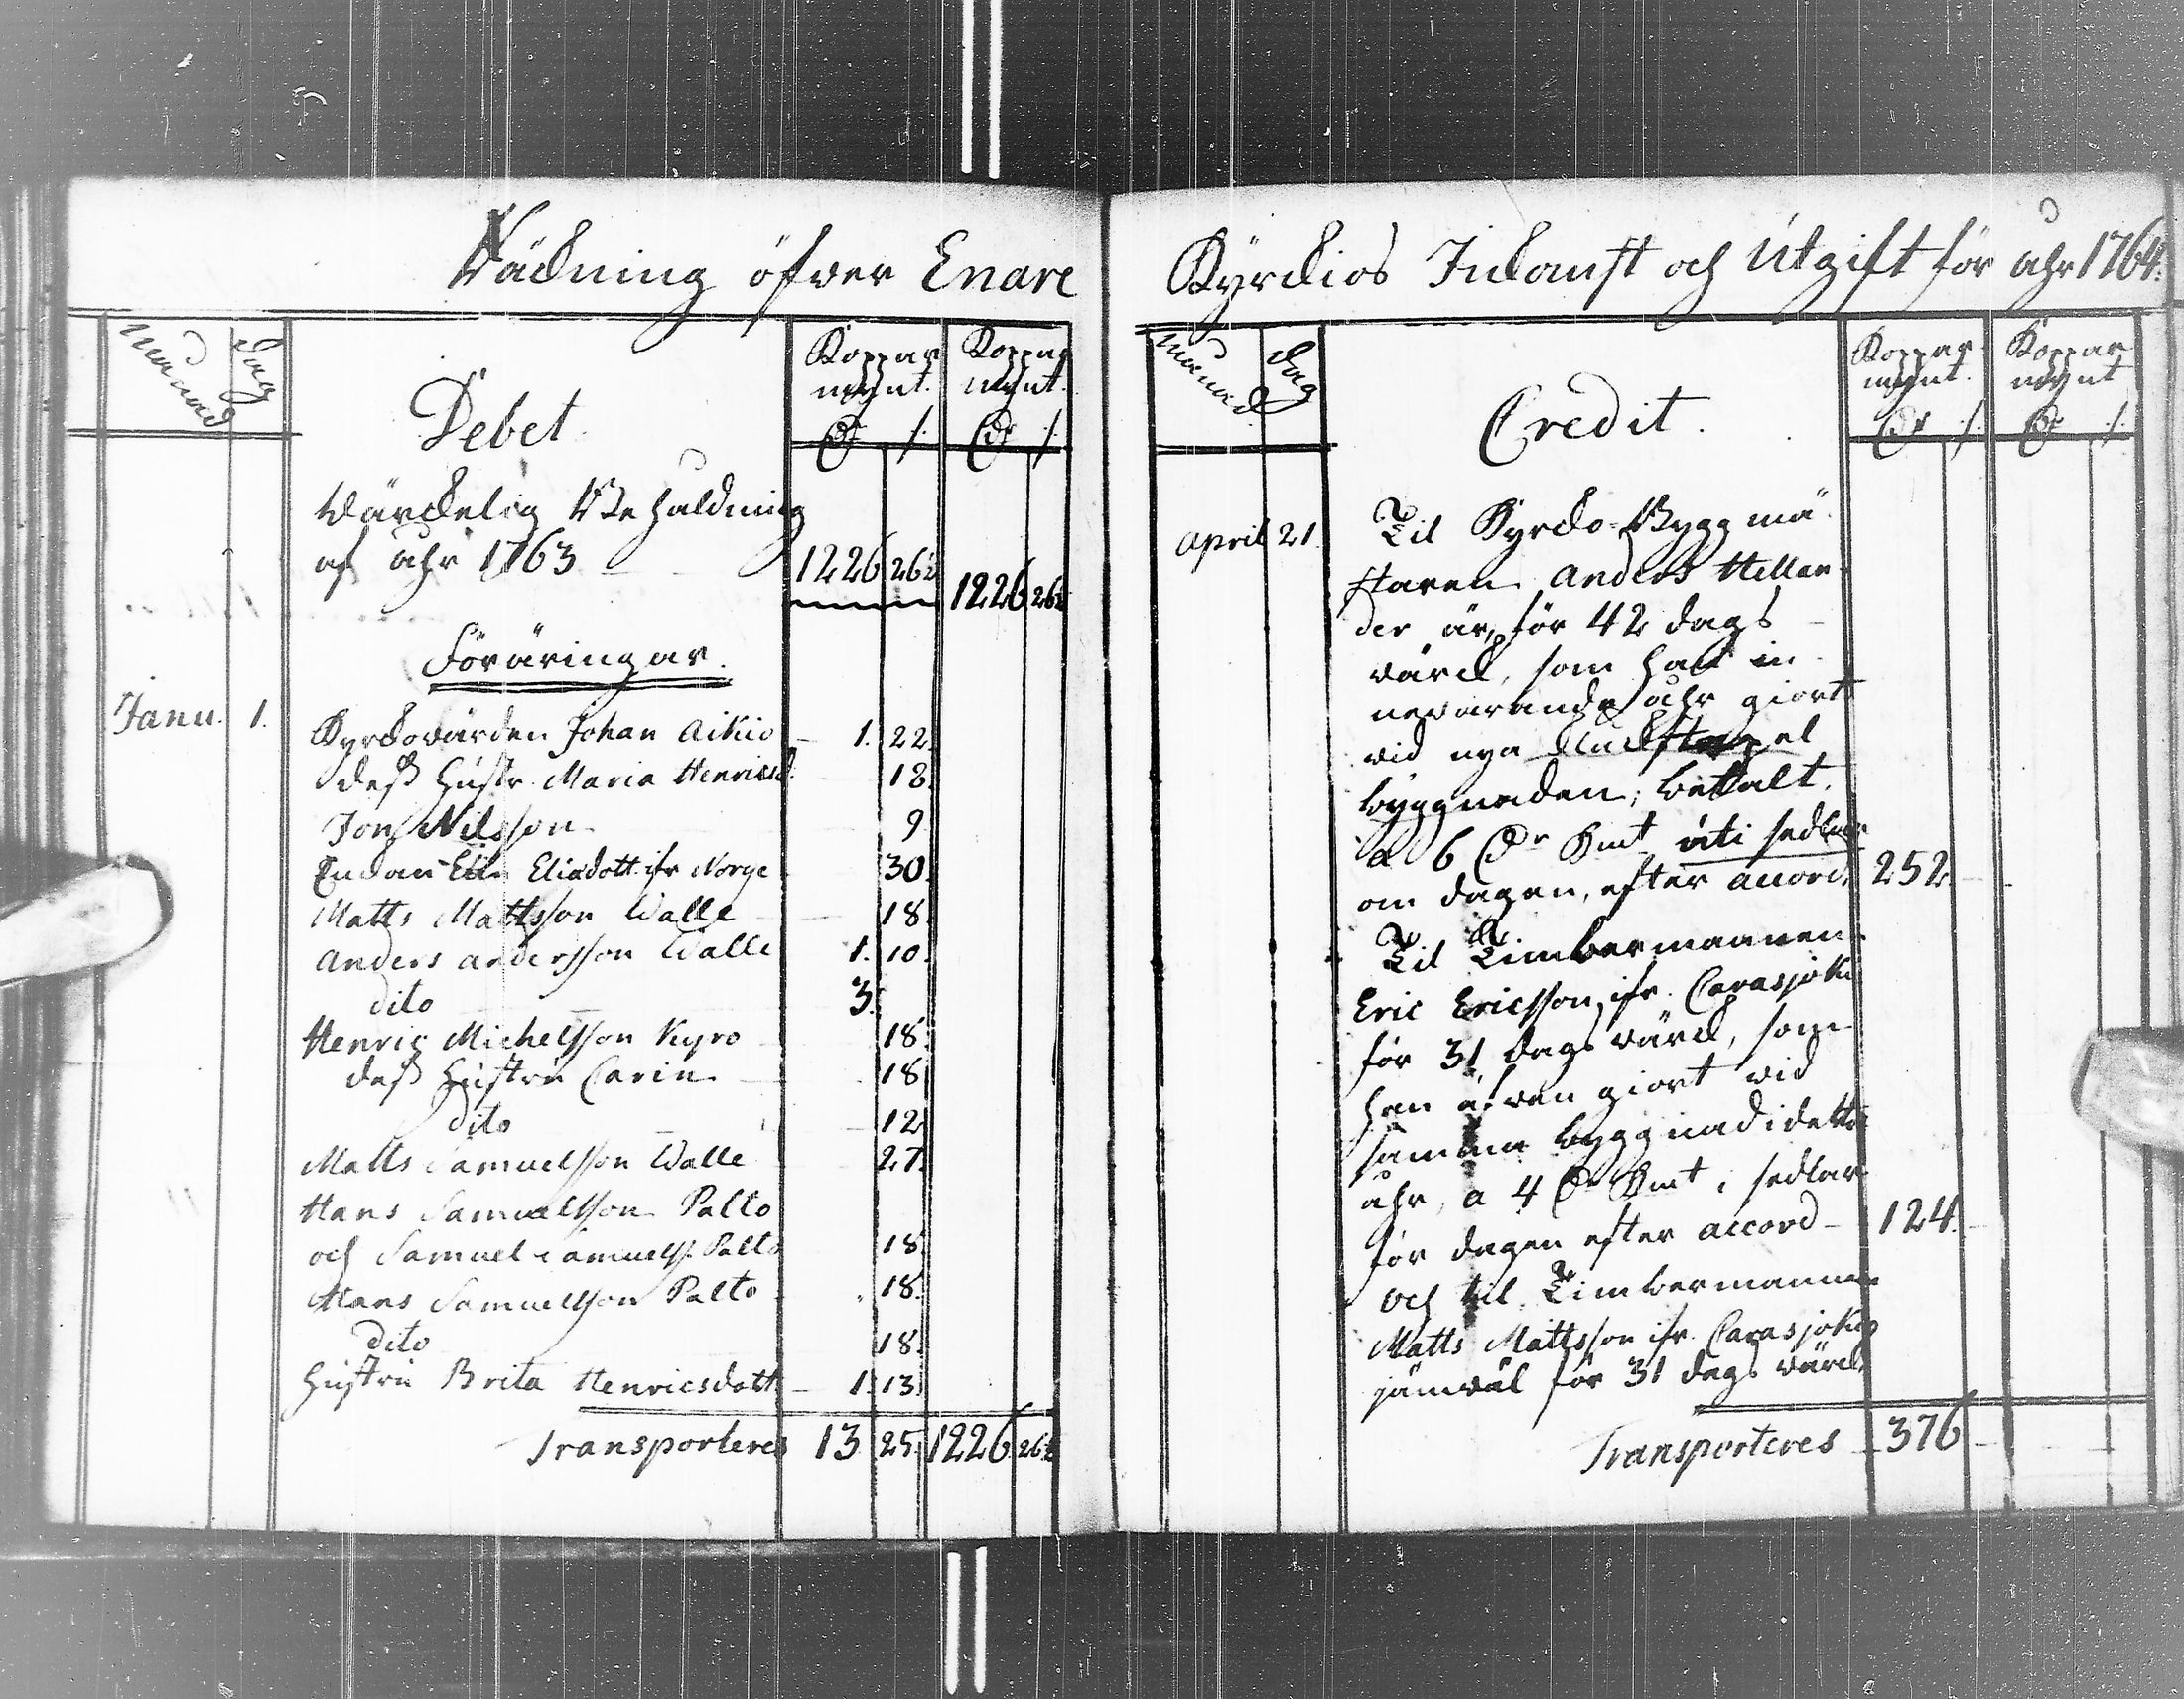 Räckning öfver Enare
Månad
Dag
Debet
Koppar
mynt.
Dr /:
Koppar
mynt.
Dr /:
Wärckelig Behåldning
af åhr 1763 1226 26½
1226 26½
Föräringar.
Janu. 1. Kyrckovärden Johan Aikio 1. 22.
dess Hustr. Maria Henricsd. 18.
Jon Nilsson 9.
Enckan Elin Eliædott. ifr. Norge 30.
Matts Mattsson Walle 18.
Anders Andersson Walle 1. 10.
dito 3.
Henric Michelsson Kyro 18.
dess Hustru Carin 18.
dito 12.
Matts Samuelsson Walle 27.
Hans Samuelsson Palto
och Samuel Samuelss. Palto 18.
Hans Samuelsson Palto 18.
dito 18.
Hustru Brita Henricsdott. 1. 13.
Transporteres 13 25. 1226. 26½
Kyrckios Inkomst och Utgift för åhr 1764.
Månad
Dag
Credit.
Koppar
mynt.
Dr /:
Koppar
mynt
Dr /:
April 21. Til Kyrcko-Byggmä
staren Anders Hellan
der är, för 42 dags
värck, som han in
nevarande åhr giort
vid nya Kluckstapel
byggnaden, betalt.
a 6 Dr Kmt uti sedlar
om dagen, efter accord. 252.
Til Timbermannen
Eric Ericsson ifr. Carasjoki
för 31 dags värck, som
han äfven giort vid
samma byggnad i detta
åhr, a 4 Dr Kmt i sedlar
för dagen efter accord 124.
och til Timbermannen
Matts Mattsson ifr. Carasjoki
jämväl för 31 dags värck
Transporteres 376